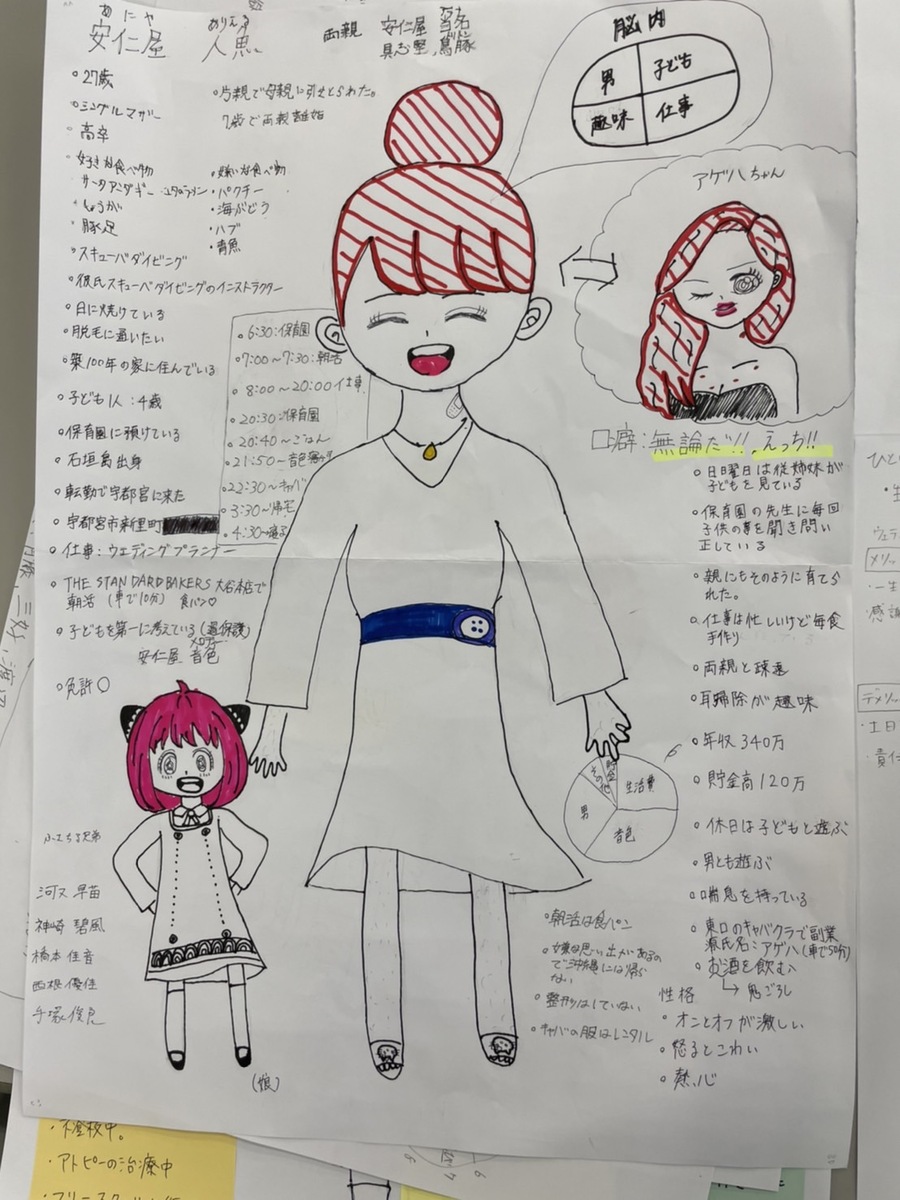 あにや ありえる
安仁屋 人魚
両親 安仁屋 当名
具志堅 島豚
脳内
男 子ども
趣味 仕事
27歳
シングルマザー
高卒
好きな食べ物
サータアンダギー
しょうが
豚足
スキューバダイビング
彼氏スキューバダイビングのインストラクター
日に焼けている
脱毛に通いたい
築100年の家に住んでいる
子ども1人:4歳
保育園に預けている
石垣島出身
転勤で宇都宮に来た
宇都宮市新里町
仕事:ウエディングプランナー
THE STANDARDBAKERS 大谷本店で
朝活 (車で10分) 食パン♡
子どもを第一に考えている(過保護)
メロディー
安仁屋 音色
免許○
片親で母親に引きとられた。
7歳で両親離婚
嫌いな食べ物
パクチー
海ぶどう
ハブ
青魚
6:30:保育園
7:00〜7:30:朝活
8:00〜20:00 仕事
20:30:保育園
20:40〜ごはん
21:50〜音色
22:30〜キャバ
3:30〜帰宅
4:30〜寝る
アゲハちゃん
口癖:無論だ!!,えっち!!
日曜日は従姉妹が
子どもを見ている
保育園の先生に毎回
子供の事を聞き問い
正している
親にもそのように育てら
れた。
仕事は忙しいけど毎食
手作り
両親と疎遠
耳掃除が趣味
年収340万
貯金高120万
休日は子どもと遊ぶ
男とも遊ぶ
喘息を持っている
東口のキャバクラで副業
源氏名:アゲハ(車で50分)
お酒を飲む
→鬼ごろし
性格
オンとオフが激しい
怒るとこわい
熱心
貯金
その他
生活費
男
音色
朝活は食パン
嫌な思い出があるの
で沖縄には帰ら
ない
整形はしていない
キャバの服はレンタル
(娘)
河又 早苗
神崎 碧風
橋本 佳音
西根 優佳
手塚 俊良
不登校中。
・アトピーの治療中